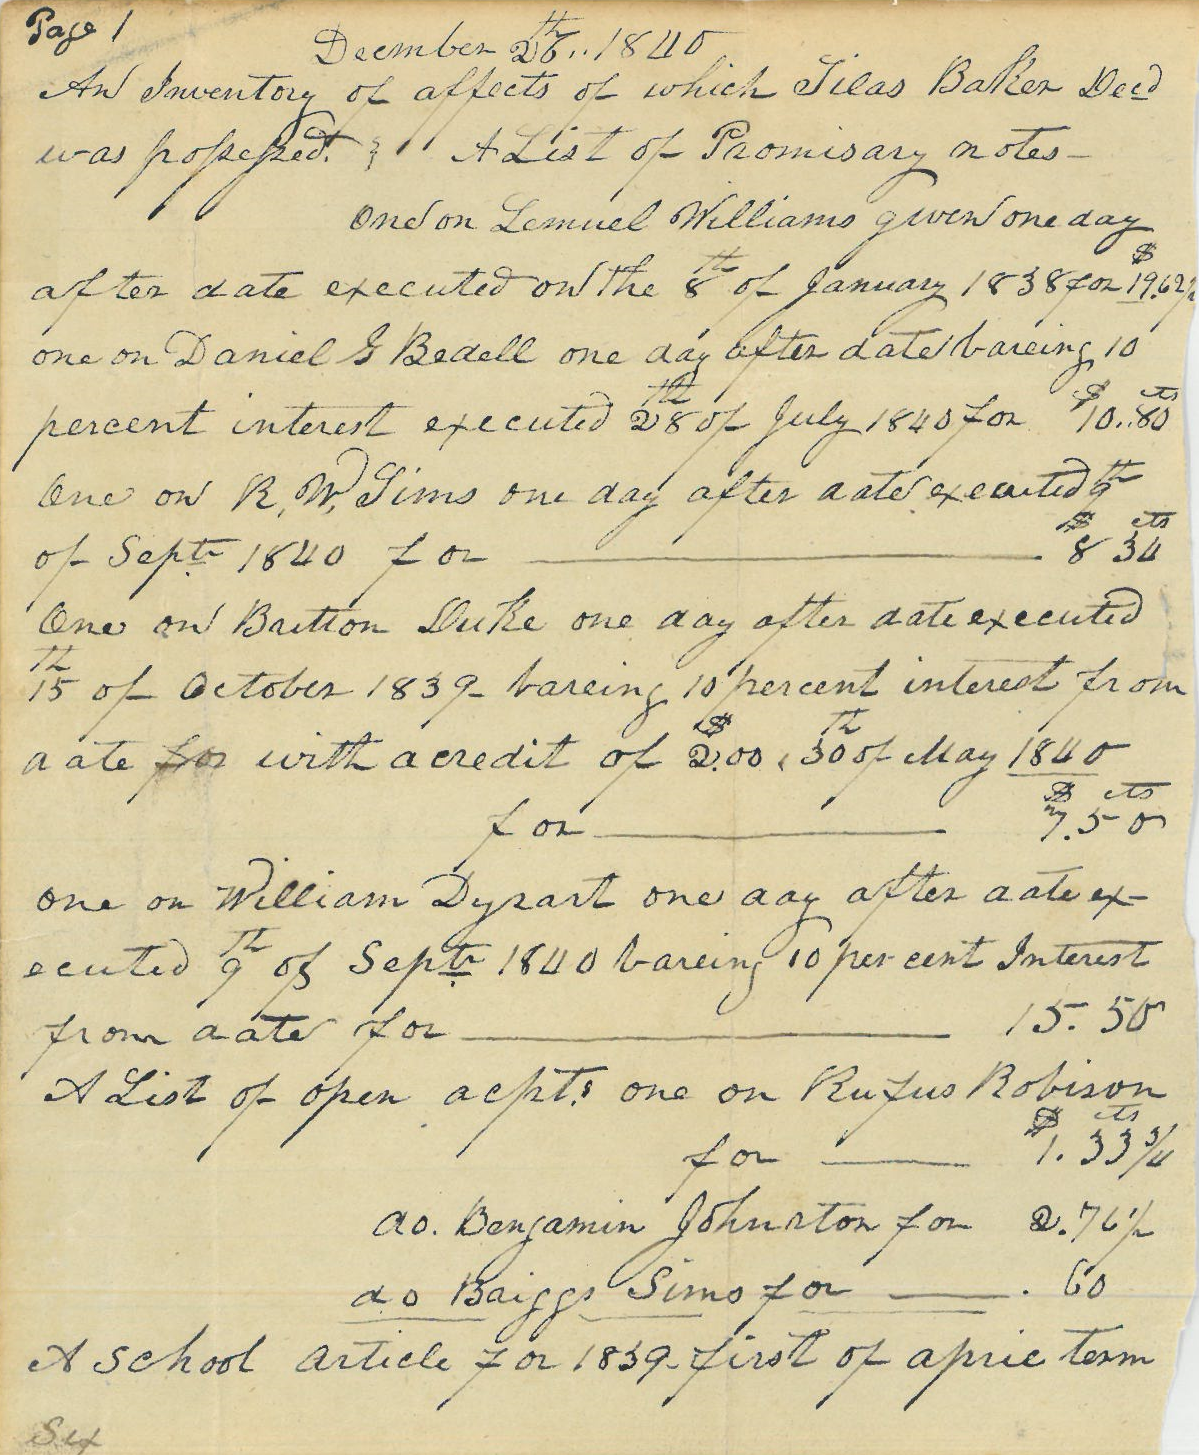 Page 1
December 26th.. 1840
An Inventory of affects of which Silas Baker Decd
was possessed. & A List of Promisary notes-
One on Lemuel Williams given one day
after date executed on the 8th of January 1838 for $19.62½
one on Daniel G Bedell one day after date bareing 10
percent interest executed 28th of July 1840 for $10..80 cts
One on R, W, Sims one day after date executed 9th
of Septr 1840 for $8 34 cts
One on Britton Duke one day after date executed
15th of October 1839 bareing 10 percent interest from
date for with a credit of $2.00, 30th of May 1840
for $7.50 cts
one on William Dysart one day after date ex-
ecuted 9th of Septr 1840 bareing 10 per cent Interest
from date for 15.50
A List of open acpts one on Rufus Robison
for $1.33¾ cts
do. Benjamin Johnston for 2.76½
do Baiggs Sims for . 60
A School article for 1839 first of apric term
Six